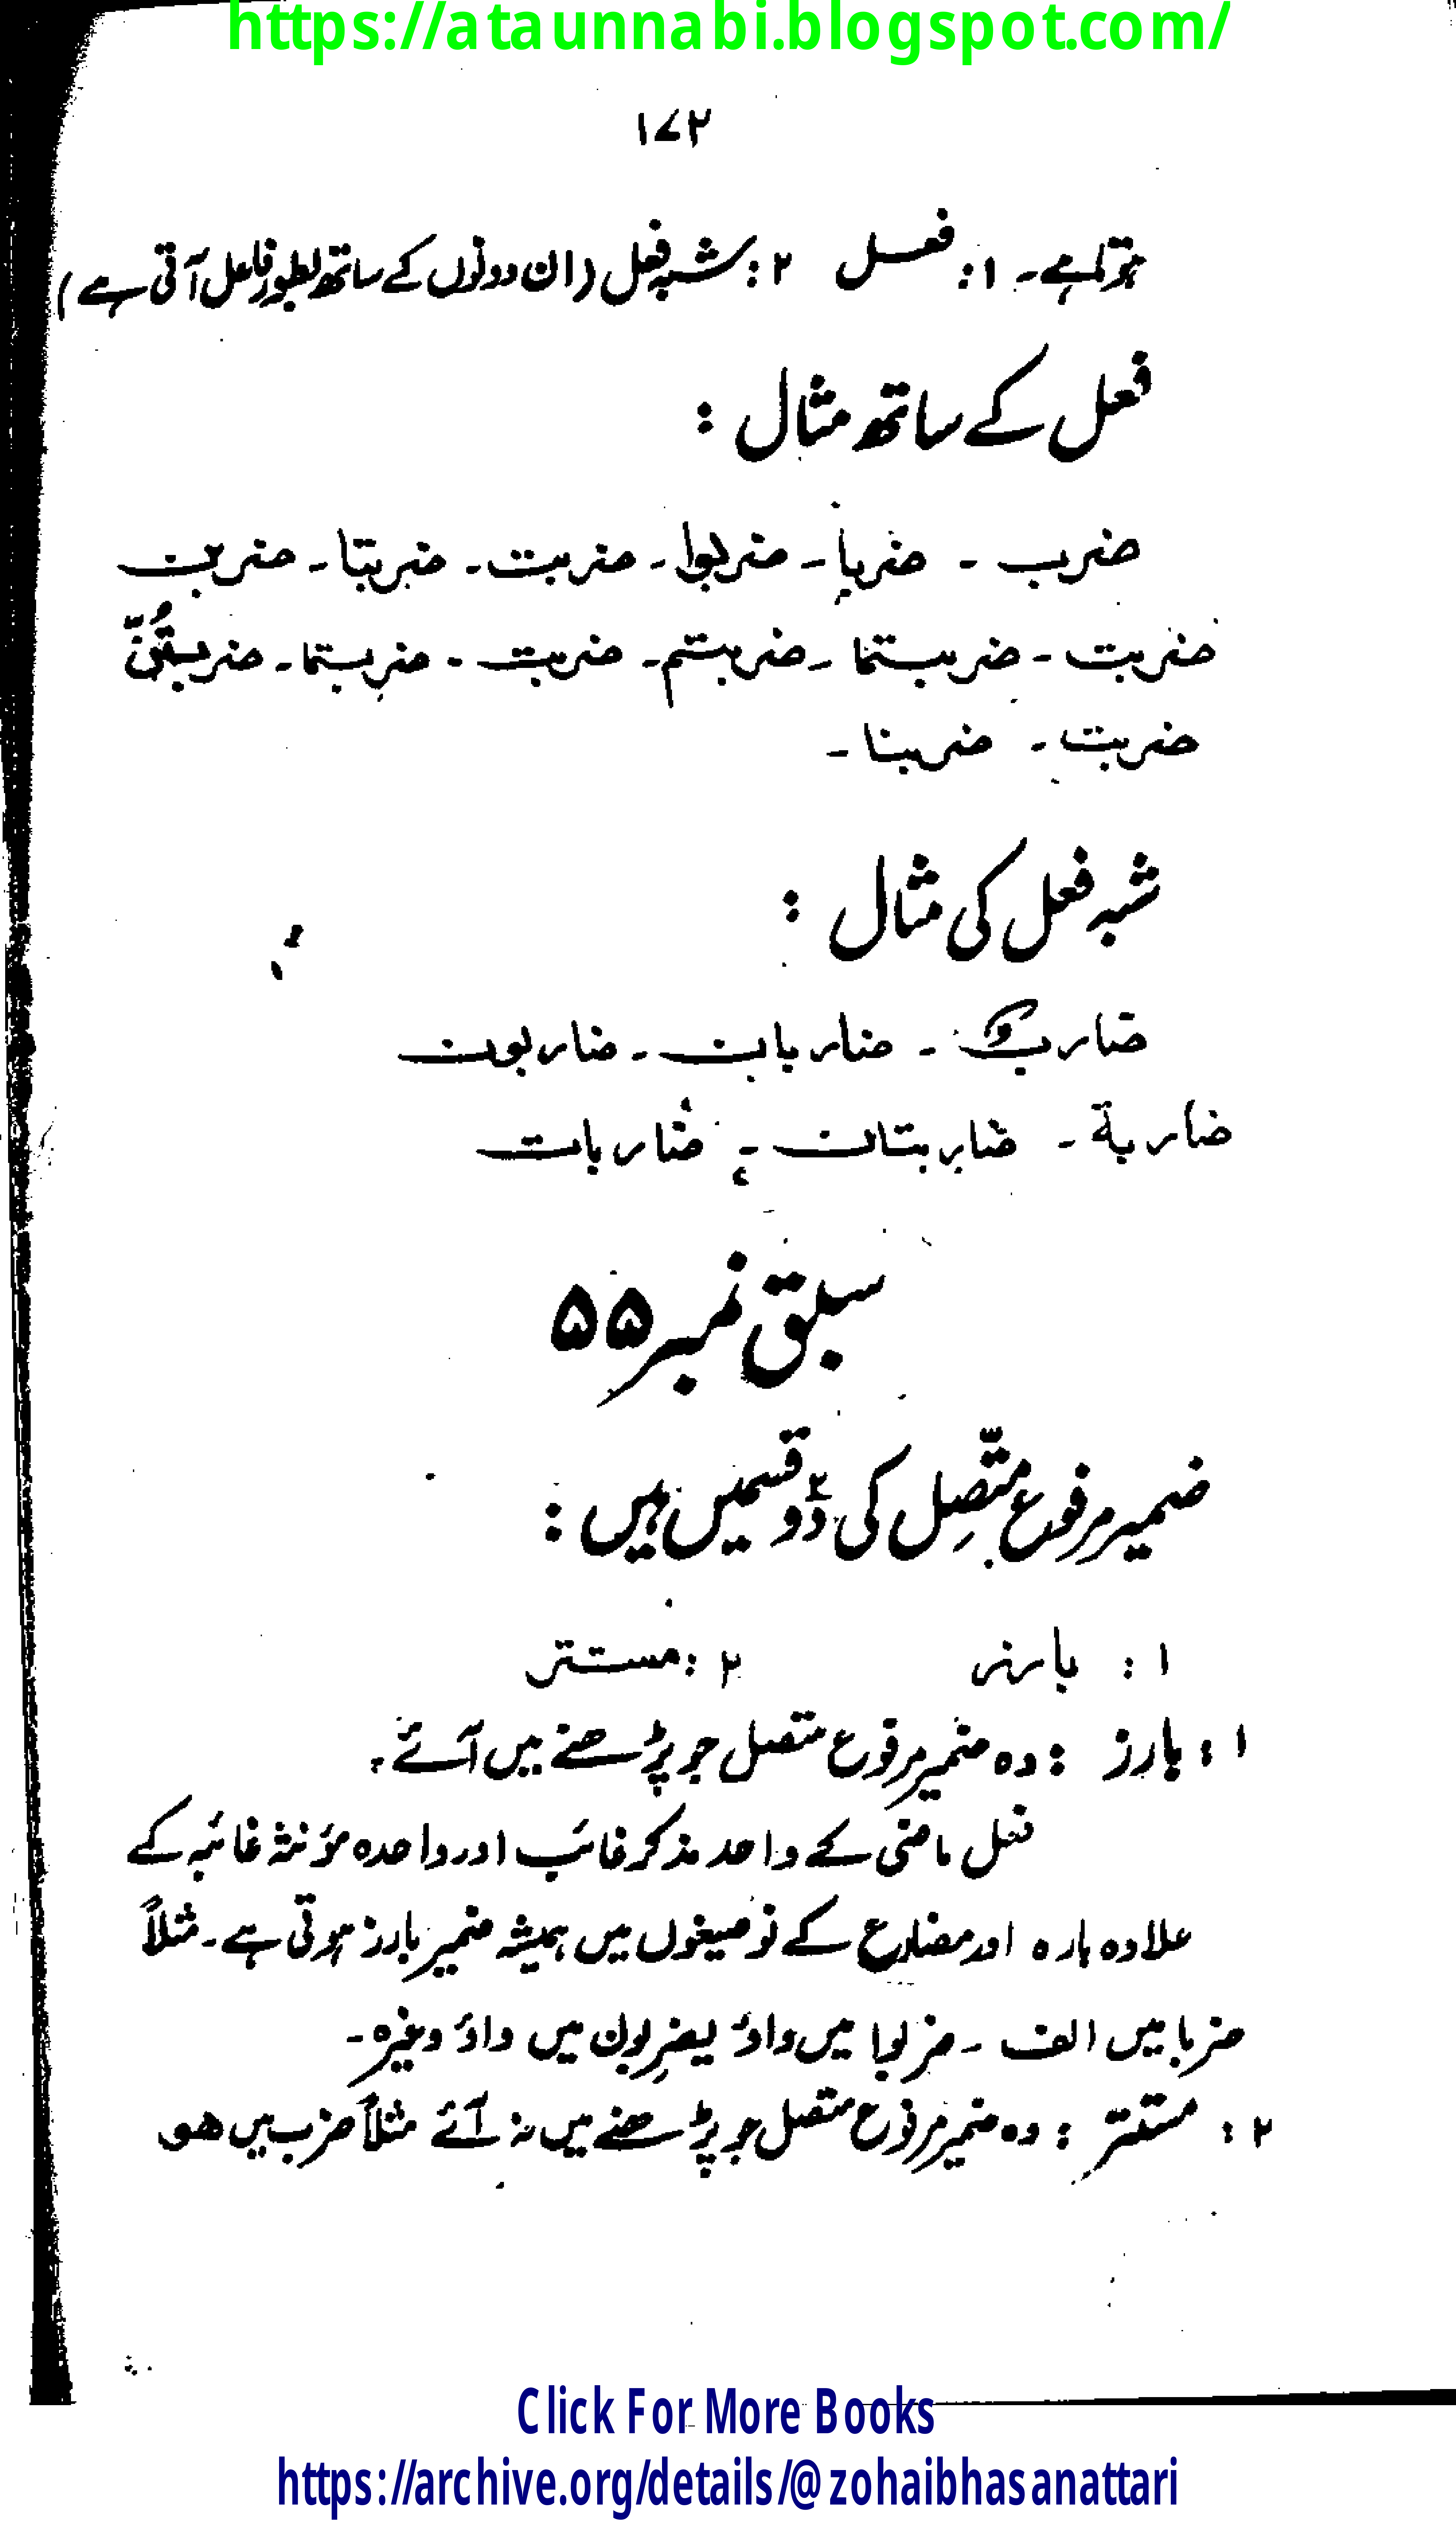 https://ataunnabi.blogspot.com/
۱۷۲
ہوتا ہے۔ ۱: فعل ۲: شبہ فعل (ان دونوں کے ساتھ بطور فاعل آتی ہے)
فعل کے ساتھ مثال :
ضرب ۔ ضربا ۔ ضربوا ۔ ضربت ۔ ضربتا ۔ ضربن
ضربت ۔ ضربتما ۔ ضربتم ۔ ضربت ۔ ضربتما ۔ ضربتُنّ
ضربت ۔ ضربنا ۔
شبہ فعل کی مثال :
ضارب ۔ ضاربان ۔ ضاربون
ضاربة ۔ ضاربتان ۔ ضاربات
سبق نمبر ۵۵
ضمیر مرفوع متّصِل کی دو۲ قسمیں ہیں :
۱ : بارز ۲ : مستتر
۱ : بارز : وہ ضمیر مرفوع متصل جو پڑھنے میں آئے۔
فعل ماضی کے واحد مذکر غائب اور واحدہ مؤنثہ غائبہ کے
علاوہ بارہ اور مضارع کے نو صیغوں میں ہمیشہ ضمیر بارز ہوتی ہے۔ مثلاً
ضربا میں الف ۔ ضربوا میں واؤ یضربون میں واؤ وغیرہ ۔
۲ : مستتر : وہ ضمیر مرفوع متصل جو پڑھنے میں نہ آئے مثلاً ضرب میں ھو
Click For More Books
https://archive.org/details/@zohaibhasanattari